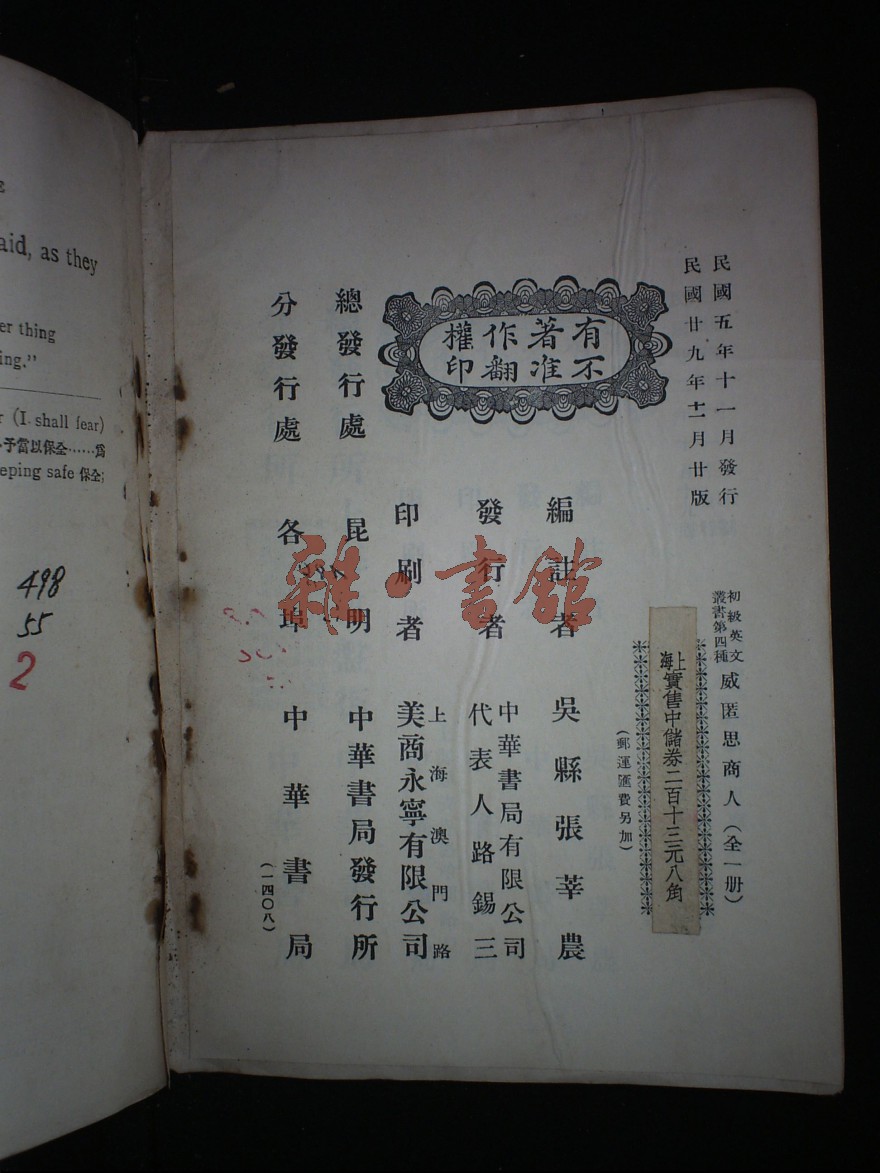 aid, as they
er thing
ing."
r (I shall fear)
予當以保全……爲
eping safe 保全;
498
55
2
民國五年十一月發行
民國廿九年十二月廿版
初級英文
叢書第四種
威匿思商人（全一册）
上海
實售中儲券二百十三元八角
（郵運匯費另加）
有著作權
不准翻印
編註者 吳縣張莘農
發行者 中華書局有限公司
代表人路錫三
印刷者 上海澳門路
美商永寧有限公司
總發行處 昆明 中華書局發行所
分發行處 各埠 中華書局
（一四〇八）
雜·書館